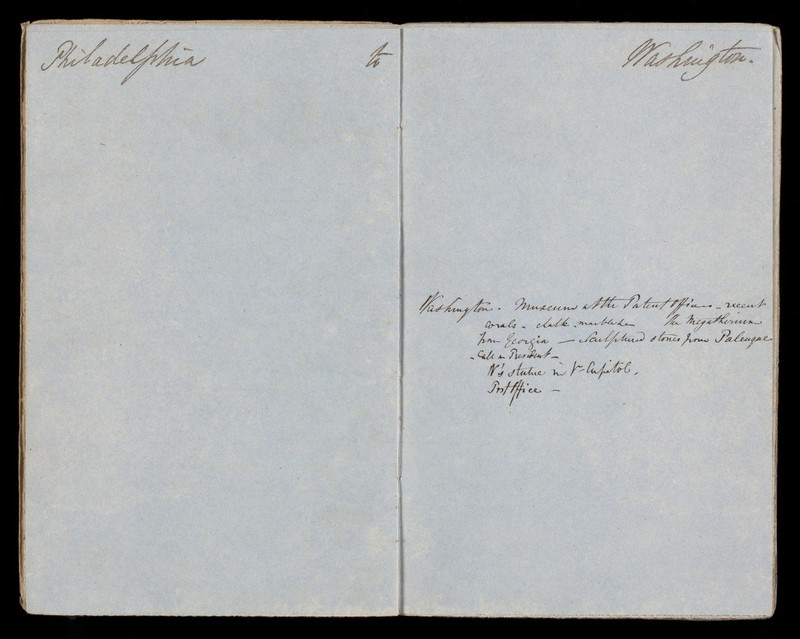 Philadelphia to Washington.
Washington. Museum at the Patent Office - recent
corals - chalk - The Megatherium
from Georgia — Sculptured stones from Palenque
- Call on President -
W's statue in Capitol.
Post Office -